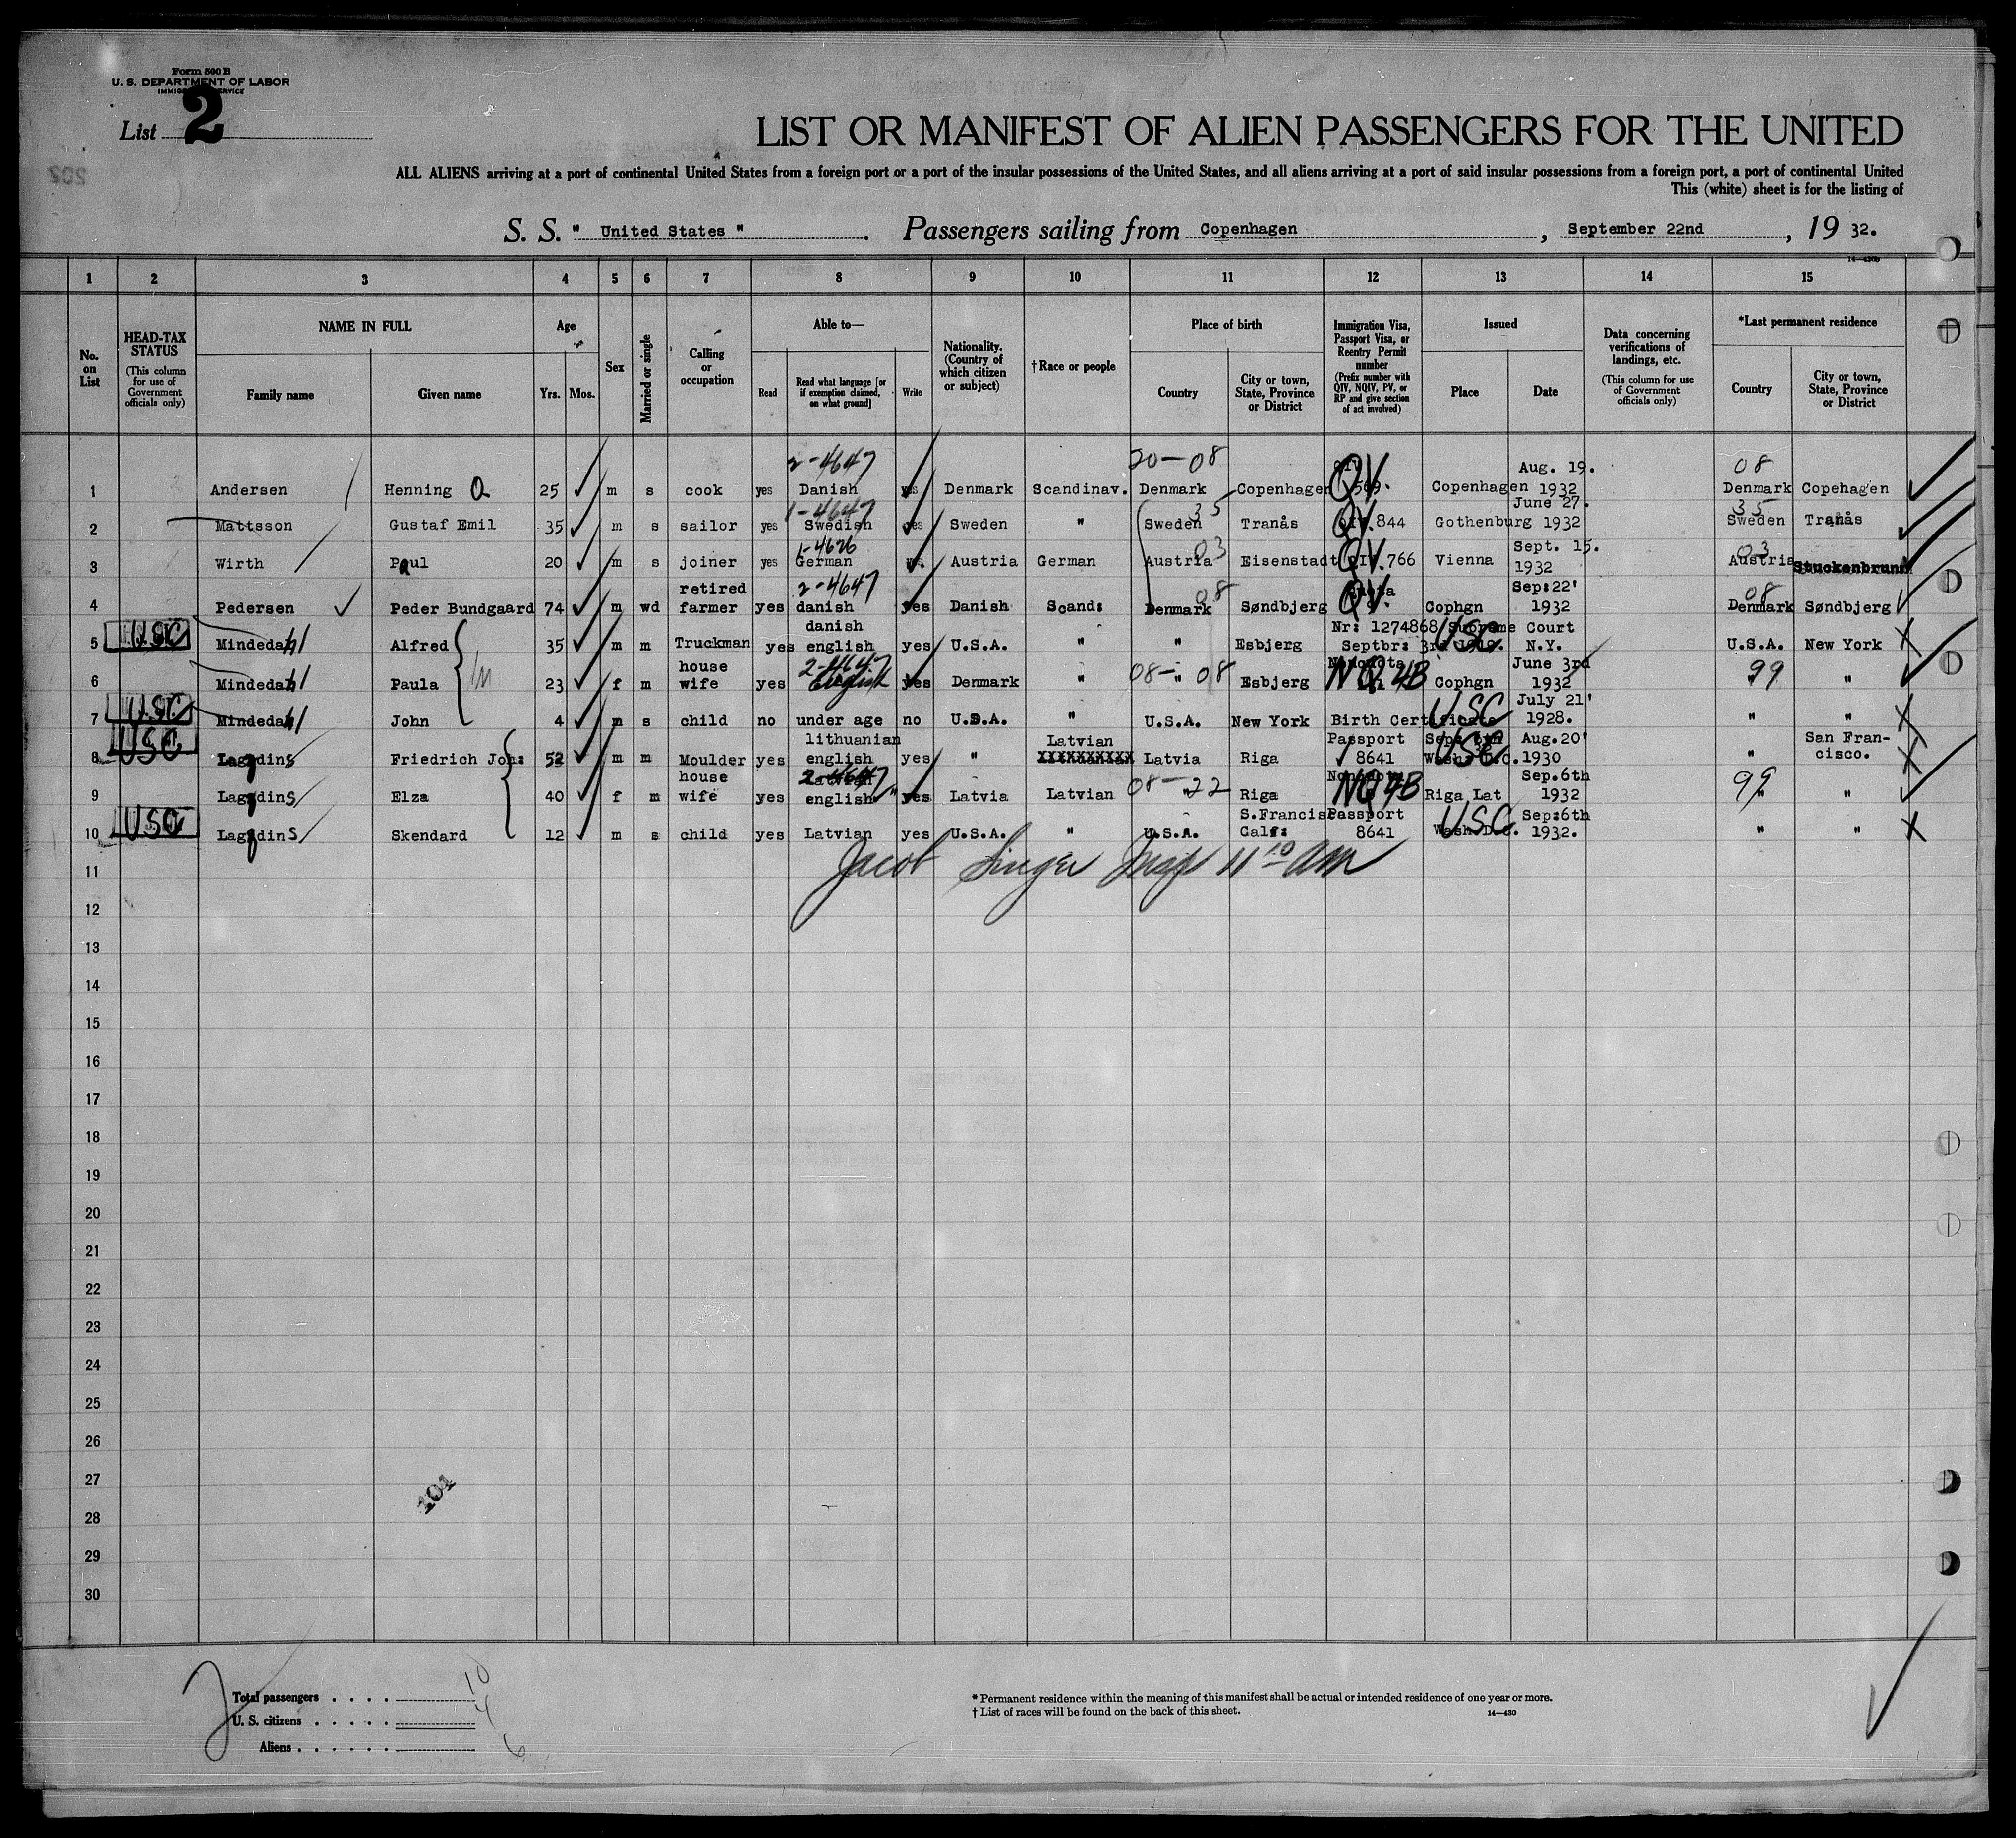 Form 500 B
U. S. DEPARTMENT OF LABOR
IMMIGRATION SERVICE
List 2
LIST OR MANIFEST OF ALIEN PASSENGERS FOR THE UNITED
ALL ALIENS arriving at a port of continental United States from a foreign port or a port of the insular possessions of the United States, and all aliens arriving at a port of said insular possessions from a foreign port, a port of continental United
This (white) sheet is for the listing of
S. S. " United States ". Passengers sailing from Copenhagen, September 22nd, 19 32.
14—430b
1 2 3 4 5 6 7 8 9 10 11 12 13 14 15
No. on List
HEAD-TAX STATUS (This column for use of Government officials only)
NAME IN FULL
Family name Given name
Age
Yrs. Mos.
Sex
Married or single
Calling or occupation
Able to—
Read Read what language [or if exemption claimed, on what ground] Write
Nationality. (Country of which citizen or subject)
†Race or people
Place of birth
Country City or town, State, Province or District
Immigration Visa, Passport Visa, or Reentry Permit number (Prefix number with QIV, NQIV, PV, or RP and give section of act involved)
Issued
Place Date
Data concerning verifications of landings, etc. (This column for use of Government officials only)
*Last permanent residence
Country City or town, State, Province or District
2-4647 20-08 Aug. 19. 08
1 Andersen Henning O 25 m s cook yes Danish yes Denmark Scandinav. Denmark Copenhagen QV. Copenhagen 1932 Denmark Copehagen
1-4647 35 June 27. 35
2 Mattsson Gustaf Emil 35 m s sailor yes Swedish yes Sweden " Sweden Tranås QV. 844 Gothenburg 1932 Sweden Tranås
1-4626 03 Sept. 15. 03
3 Wirth Paul 20 m s joiner yes German yes Austria German Austria Eisenstadt QV. 766 Vienna 1932 Austria Stuckenbrunn
retired 2-4647 08 Sep:22' 08
4 Pedersen Peder Bundgaard 74 m wd farmer yes danish yes Danish Scand: Denmark Søndbjerg QV. Cophgn 1932 Denmark Søndbjerg
USC danish Nr: 1274868 Supreme Court
5 Mindedahl Alfred 35 m m Truckman yes english yes U.S.A. " " Esbjerg Septbr: 3rd 1919. USC N.Y. U.S.A. New York
house 2-4647 08-08 Nonquota June 3rd 99
6 Mindedahl Paula 23 f m wife yes English yes Denmark " " Esbjerg NQ 4B Cophgn 1932 " "
USC July 21'
7 Mindedahl John 4 m s child no under age no U.S.A. " U.S.A. New York Birth Certificate USC 1928. " "
USC lithuanian Latvian Passport Aug.20' San Fran-
8 Lagzdins Friedrich Joh: 52 m m Moulder yes english yes " XXXXXXXXXX Latvia Riga 8641 Wash: D.C. USC 1930 " cisco.
house 2-4647 08-22 Nonquota Sep.6th 99
9 Lagzdins Elza 40 f m wife yes english yes Latvia Latvian " Riga NQ 4B Riga Lat 1932 " "
USC S.Francisco Passport Sep:6th
10 Lagzdins Skendard 12 m s child yes Latvian yes U.S.A. " U.S.A. Calf: 8641 Wash.D.C. USC 1932. " "
Jacob Singer Insp 11 10 AM
11
12
13
14
15
16
17
18
19
20
21
22
23
24
25
26
27
28
29
30
101
Total passengers . . . . 10
U. S. citizens . . . . . 4
Aliens . . . . . . 6
* Permanent residence within the meaning of this manifest shall be actual or intended residence of one year or more.
† List of races will be found on the back of this sheet.
14—430